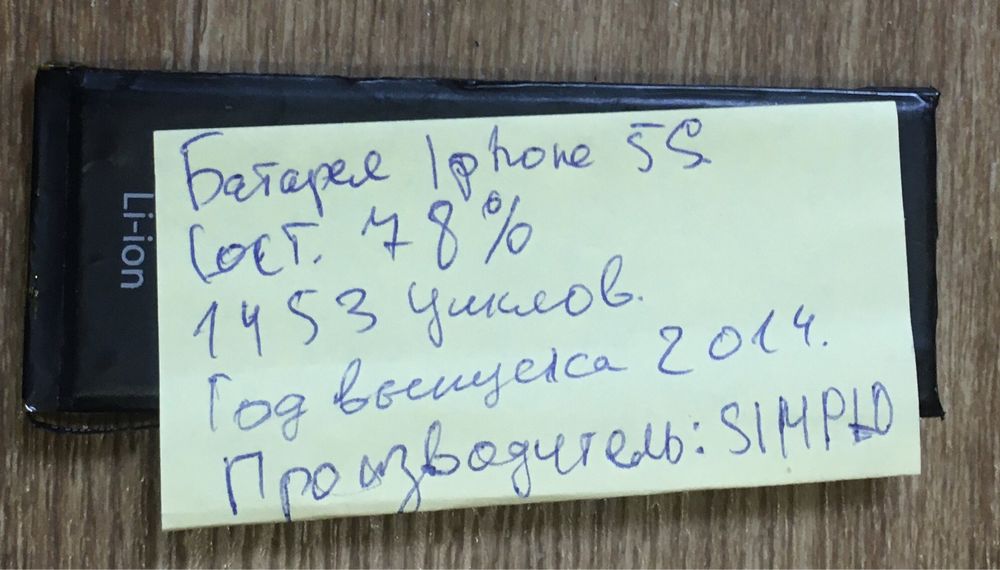 Li-ion
Батарея Iphone 5S
Сост. 78%
1453 циклов.
Год выпуска 2014.
Производитель: SIMPLO